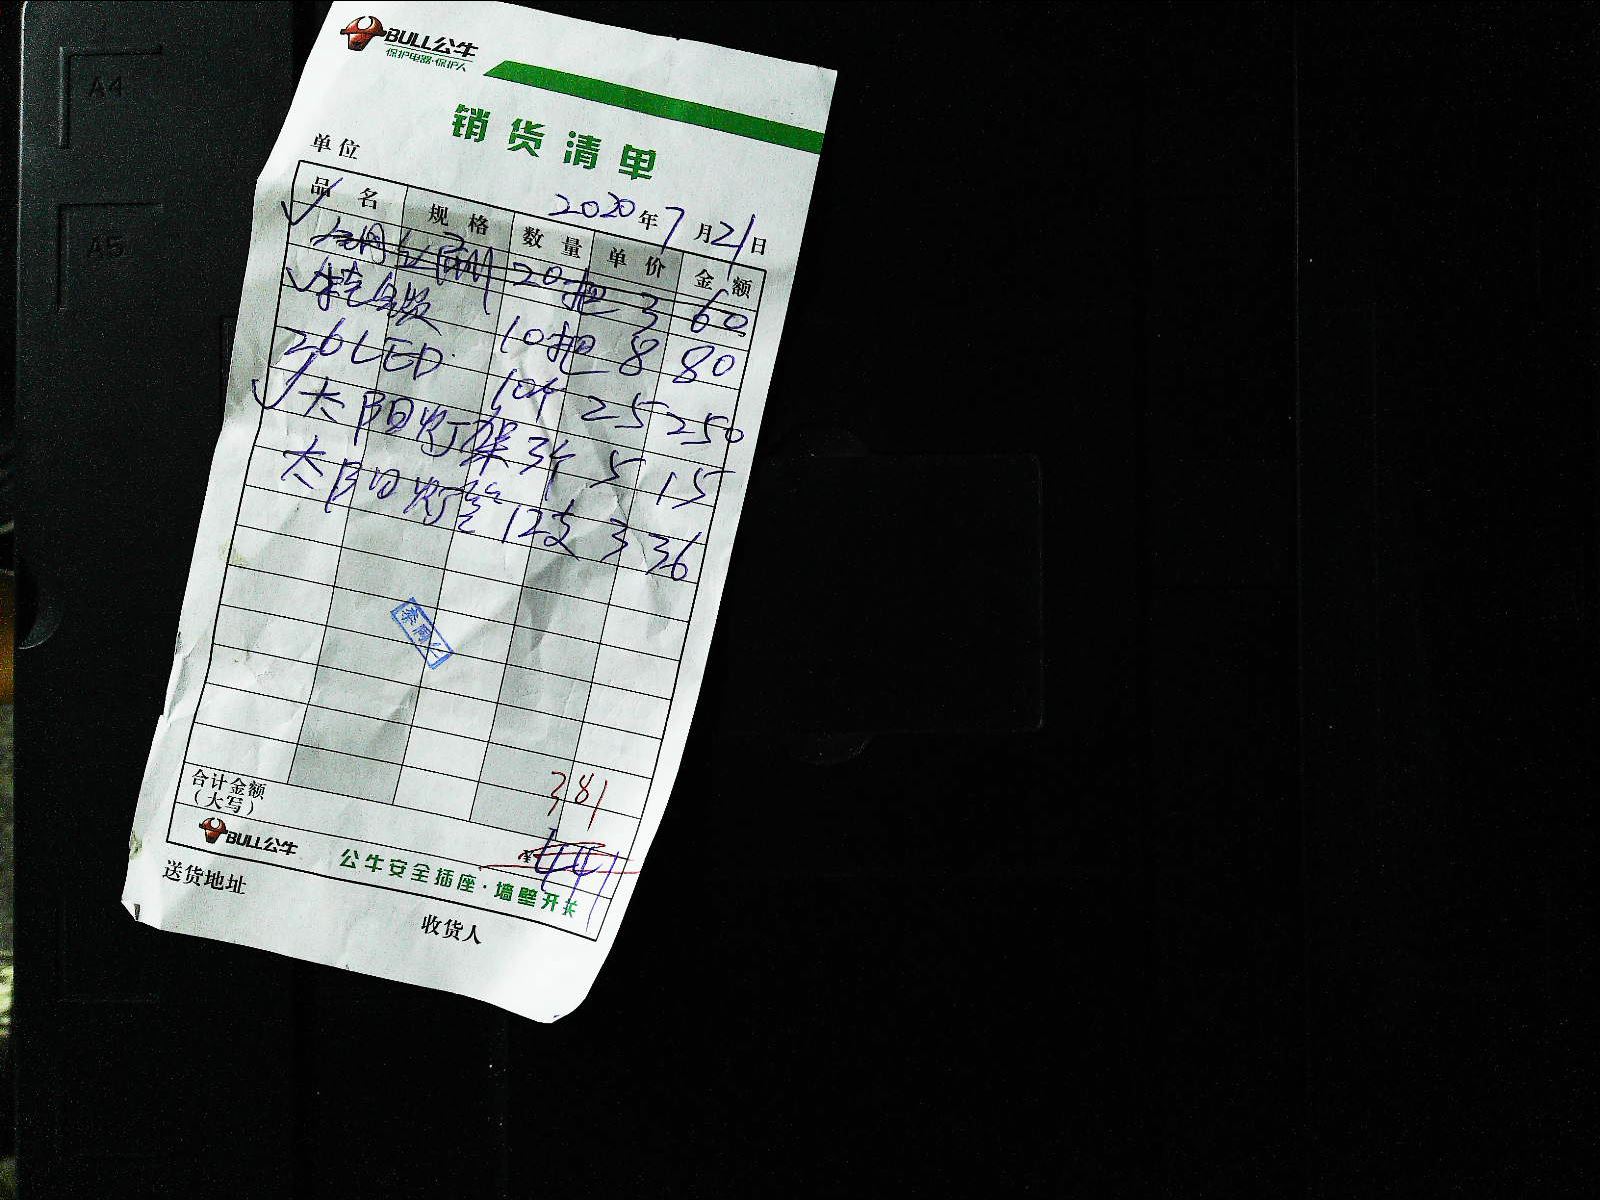 BULL公牛
保护电器·保护人
销货清单
单位
2020年7月21日
品名 规格 数量 单价 金额
20把 3 60
特色 10把 8 80
26LED 10个 25 250
太阳灯架 3个 5 15
太阳灯管 12支 3 36
381
合计金额
(大写)
¥441
BULL公牛 公牛安全插座·墙壁开关
送货地址
收货人
A4
A5